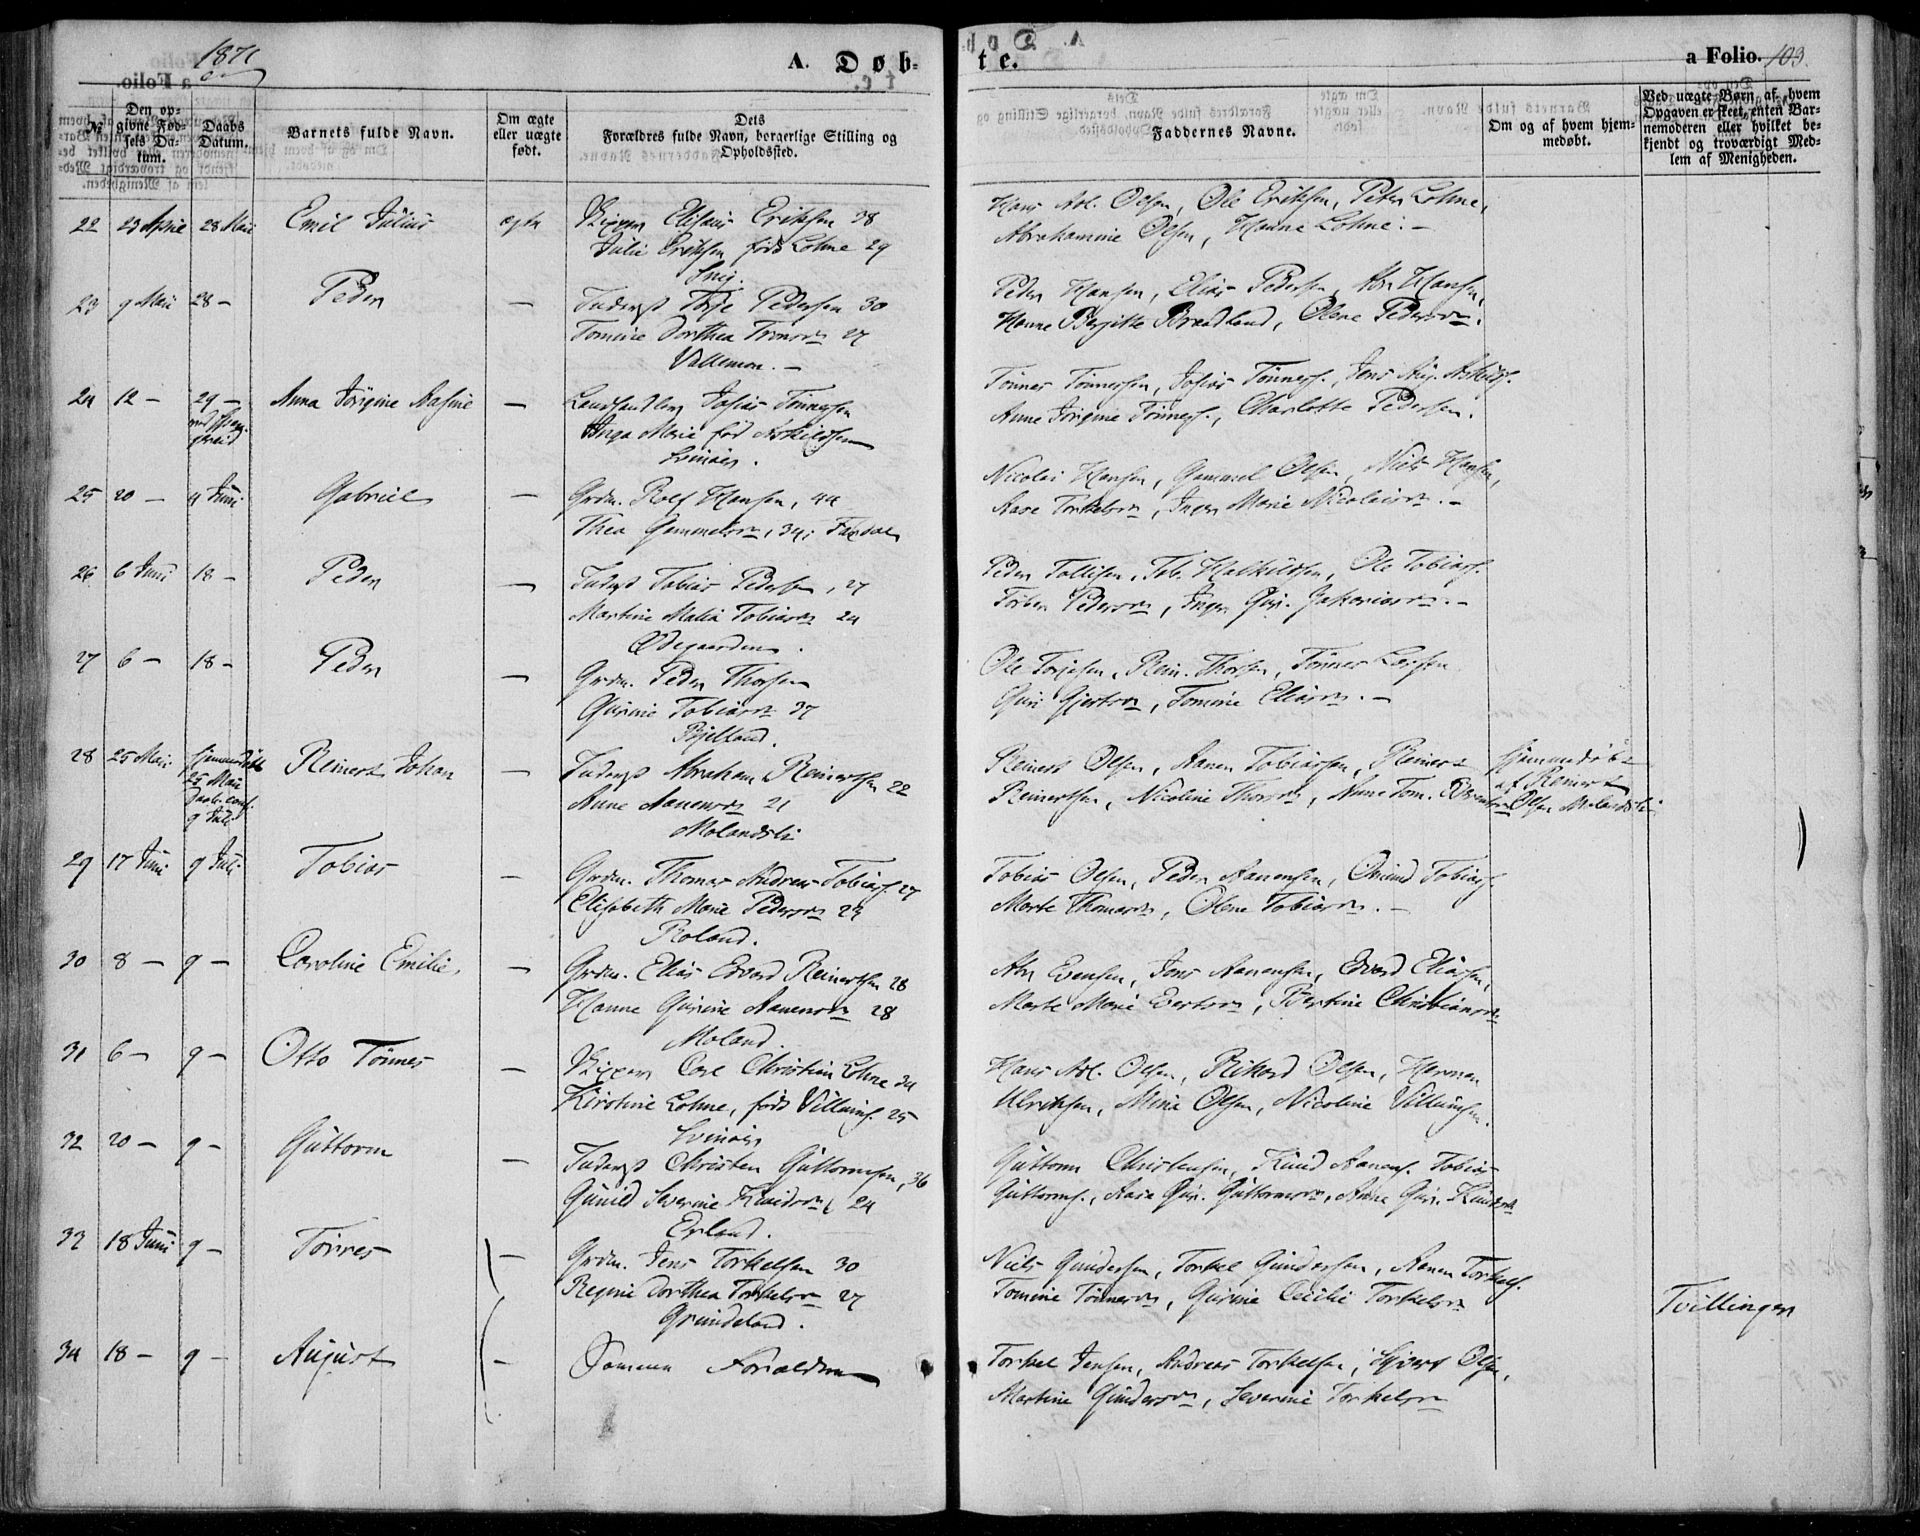 1871
A. Døb-
te.
a Folio. 103.
№
Den op-
givne Fød-
sels Da-
tum.
Daabs
Datum.
Barnets fulde Navn.
Om ægte
eller uægte
født.
Dets
Forældres fulde Navn, borgerlige Stilling og
Opholdssted.
Faddernes Navne.
Om og af hvem hjem-
medøbt.
Ved uægte Børn, af hvem
Opgaven er skeet, enten Bar-
nemoderen eller hvilket be-
kjendt og troværdigt Med-
lem af Menigheden.
22 23 April 28 Mai Emil Julius ægte Skipper Elisæus Eriksen 38
Julie Eriksen født Lohne 29
Snig.
Hans Ad. Olsen, Ole Eriksen, Peter Lohne,
Abrahamine Olsen, Hanne Lohne. -
23 9 Mai 28 - Peder - Inderst Terje Pedersen 30
Tomine Dorthea 27
Vallemon. -
Peder Hansen, Elias Pedersen, Abr Hansen,
Hanne Bergitte Brædland, Olene Pedersd.
24 12 - 29 - Anna Jørgine Aasine - Josias Tønnesen
Inga Marie født Askildsen
Svinøer.
Tønnes Tønnesen, Josias Tønnes., Jens Aug. Askilds.
Anne Jørgine Tønnes., Charlotte Pedersen.
25 20 - 4 Juni Gabriel - Grdm. Rolf Hansen, 44
Thea Gammelsd, 34,
Nicolai Hansen, Gammel Olsen, Niels Hansen,
Aase Torkelsd, Inger Marie Nicolaisd. -
26 6 Juni 18 - Peder - Inderst Tobias Pedersen, 27
Martine Malia Tobiasd 24
Ødegaarden.
Peder Tollisen, Tob. Halkildsen, Ole Tobias.
Torber Pedersd, Inger Gur. Zakariasd. -
27 6 - 18 - Peder - Grdm. Peder Thorsen
Gurine Tobiasd 37
Bjelland.
Ole Torjesen, Rein. Thorsen, Tønnes Larsen
Guri Gjertsd, Tomine Eliasd. -
28 25 Mai Hjemmedøbt
25 Mai
Daab. conf.
9 Juli
Reinert Johan - Inderst Abraham Reinertsen 22
Anne Aanensd 21
Molandsli
Reinert Olsen, Aanen Tobiassen, Reinert
Reinertsen, Nicoline Thorsd, Anne Tom.
Hjemmedøbt
af Reinert
Olsen Molandsli
29 17 Juni 9 Juli Tobias - Grdm. Thomas Andreas Tobias. 27
Elisabeth Marie Pedersd 23
Roland.
Tobias Olsen, Peder Aanensen, Tobias.
Marte Thomasd, Olene Tobiasd. -
30 8 - 9 - Caroline Emilie - Grdm. Elias Edvard Reinertsen 28
Hanne Gurine Aanensd 28
Moland.
Abr Evensen, Jens Aanensen, Edvard Eliassen,
Marte Marie Evertsd, Bertine Christiansd
31 6 - 9 - Otto Tønnes - Skipper Carl Christian Lohne 34
Kirstine Lohne, født Villums. 25
Svinøer
Hans Ad. Olsen, Rikard Olsen, Herman
Ulriksen, Mine Olsen, Nicoline Villumsen.
32 20 - 9 - Guttorm - Inderst Christen Guttormsen, 36
Gunild Severine Knudsd, 24
Erland.
Guttorm Christensen, Knud Aanens. Tobias
Guttorms., Aasa Gur. Guttormsd, Anne Gur. Knudsd
33 18 Juni 9 - Tønnes - Grdm. Jens Torkelsen 30
Regine Dorthea Torkelsd 27
Grundeland.
Niels Gundersen, Torkel Gundersen, Aanen Torkels.
Tomine Tønnesd, Gurine Cecilie Torkelsd
Tvillinger
34 18 - 9 - August - Samme Forældre
Torkel Jensen, Andreas Torkelsen, Sivert Olsen,
Martine Gundersd, Severine Torkelsd